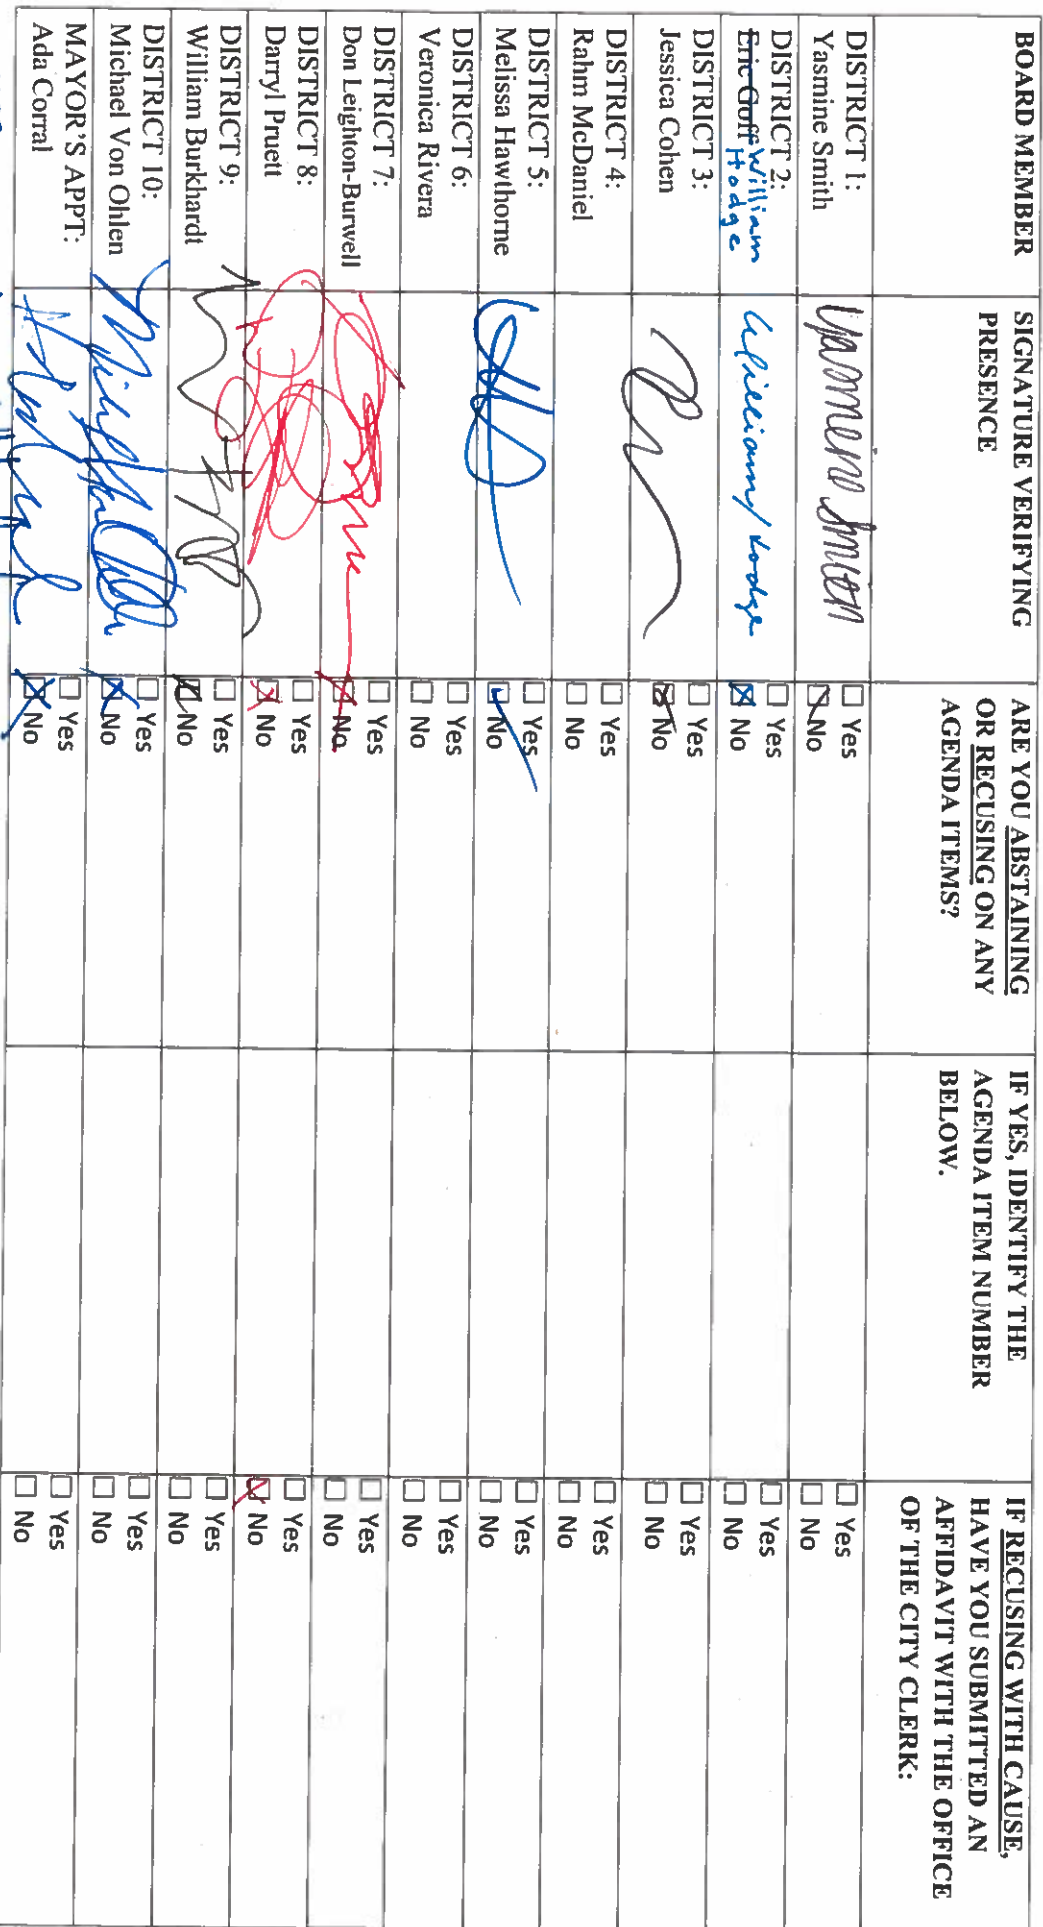 BOARD MEMBER
SIGNATURE VERIFYING
PRESENCE
ARE YOU ABSTAINING
OR RECUSING ON ANY
AGENDA ITEMS?
IF YES, IDENTIFY THE
AGENDA ITEM NUMBER
BELOW.
IF RECUSING WITH CAUSE,
HAVE YOU SUBMITTED AN
AFFIDAVIT WITH THE OFFICE
OF THE CITY CLERK:
DISTRICT 1:
Yasmine Smith
Yasmine Smith
☐ Yes
☒ No
☐ Yes
☐ No
DISTRICT 2:
Eric Goff William
Hodge
William Hodge
☐ Yes
☒ No
☐ Yes
☐ No
DISTRICT 3:
Jessica Cohen
☐ Yes
☒ No
☐ Yes
☐ No
DISTRICT 4:
Rahm McDaniel
☐ Yes
☐ No
☐ Yes
☐ No
DISTRICT 5:
Melissa Hawthorne
☐ Yes
☒ No
☐ Yes
☐ No
DISTRICT 6:
Veronica Rivera
☐ Yes
☐ No
☐ Yes
☐ No
DISTRICT 7:
Don Leighton-Burwell
☐ Yes
☒ No
☐ Yes
☐ No
DISTRICT 8:
Darryl Pruett
☐ Yes
☒ No
☐ Yes
☒ No
DISTRICT 9:
William Burkhardt
☐ Yes
☒ No
☐ Yes
☐ No
DISTRICT 10:
Michael Von Ohlen
☐ Yes
☒ No
☐ Yes
☐ No
MAYOR'S APPT:
Ada Corral
☐ Yes
☒ No
☐ Yes
☐ No